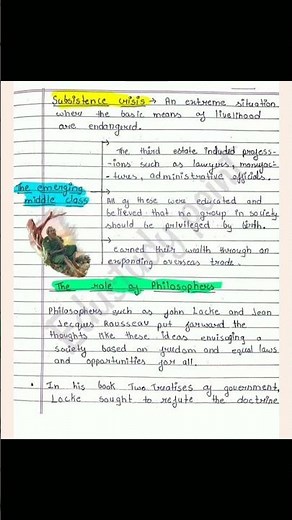 Subsistence crisis → An extreme situation
where the basic means of livelihood
are endangered.
The emerging
middle class
→ The third estate included profess-
ions such as lawyers, manufac-
tures, administrative officials.
→ All of these were educated and
believed that no group in society
should be privileged by birth.
→ earned their wealth through an
expanding overseas trade.
The role of Philosophers
Philosophers such as John Locke and Jean
Jacques Rousseau put forward the
thoughts like these ideas envisaging a
society based on freedom and equal laws
and opportunities for all.
• In his book Two Treatises of government,
Locke sought to refute the doctrine